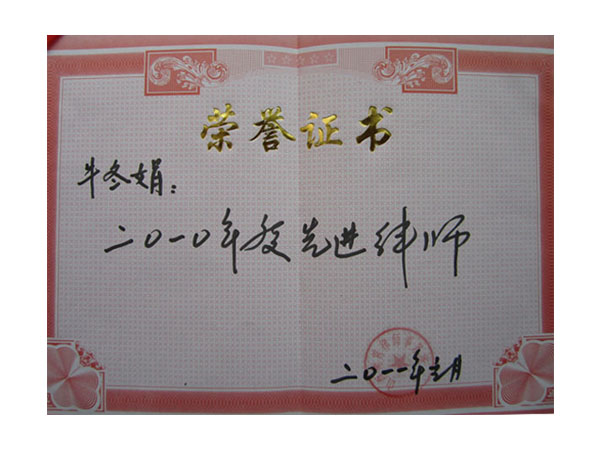 荣誉证书
牛冬娟：
二〇一〇年度先进律师
二〇一一年三月